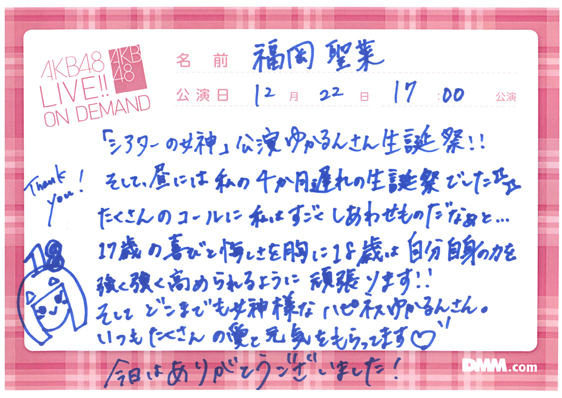 AKB48
LIVE!!
ON DEMAND
AKB
48
名前 福岡聖菜
公演日 12月22日 17:00 公演
「シアターの女神」公演ゆかるんさん生誕祭!!
そして、昼には私の4か月遅れの生誕祭でした♫♫
たくさんのコールに私はすごくしあわせものだなぁと…
17歳の喜びと悔しさを胸に18歳は自分自身の力を
強く強く高められるように頑張ります!!
そしてどこまでも女神様なハピネスゆかるんさん。
いつもたくさんの愛と元気をもらってます♡
今日はありがとうございました!
Thank
you!
18
DMM.com